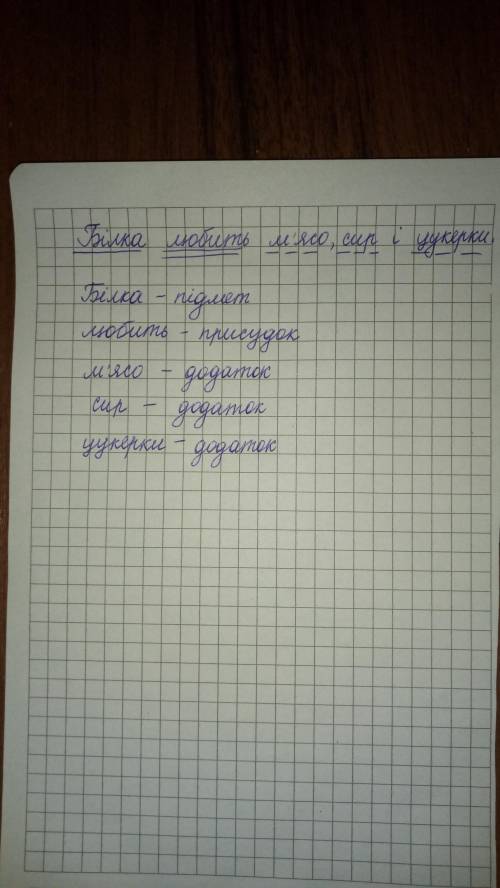 Білка любить м'ясо, сир і цукерки.
Білка – підмет
любить – присудок
м'ясо – додаток
сир – додаток
цукерки – додаток